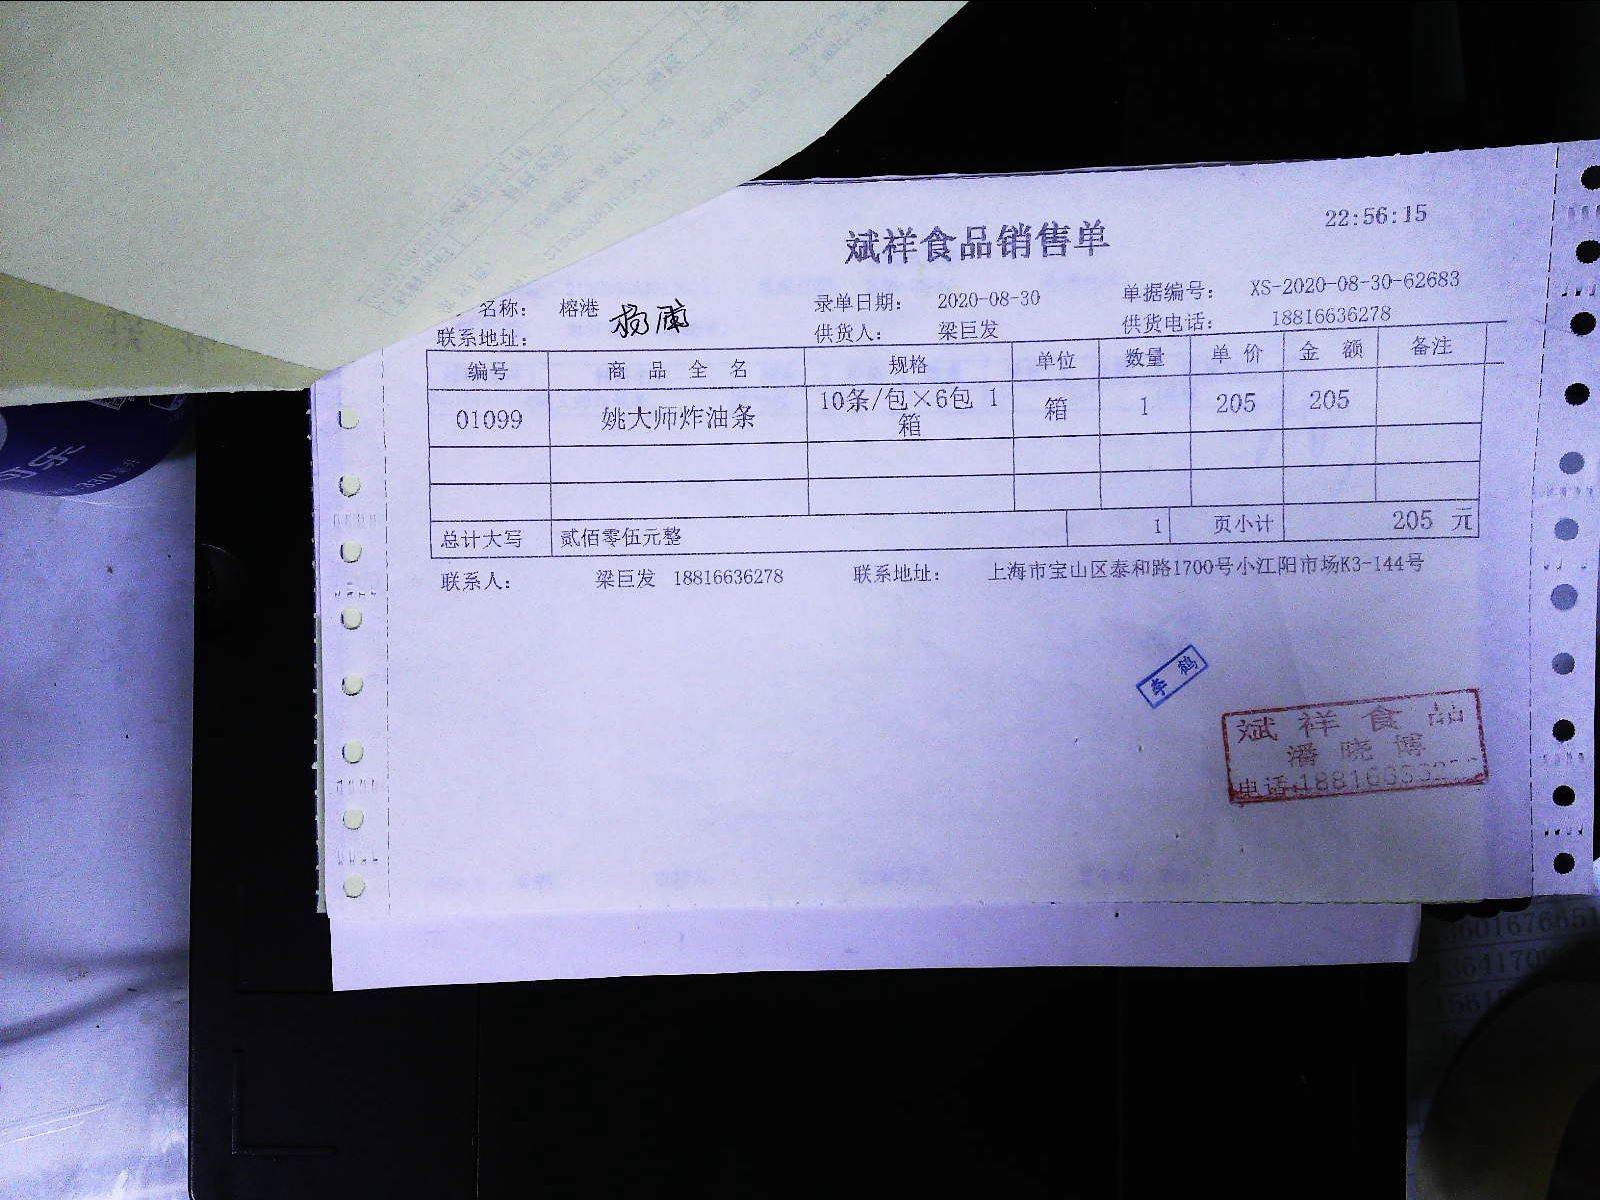 22:56:15
斌祥食品销售单
名称： 榕港 录单日期： 2020-08-30 单据编号： XS-2020-08-30-62683
联系地址： 供货人： 梁巨发 供货电话： 18816636278
编号 商品全名 规格 单位 数量 单价 金额 备注
01099 姚大师炸油条 10条/包×6包 1箱 箱 1 205 205
总计大写 贰佰零伍元整 1 页小计 205 元
联系人： 梁巨发 18816636278 联系地址： 上海市宝山区泰和路1700号小江阳市场K3-144号
李鹤
斌祥食品
潘晓博
电话:18816
可乐
330